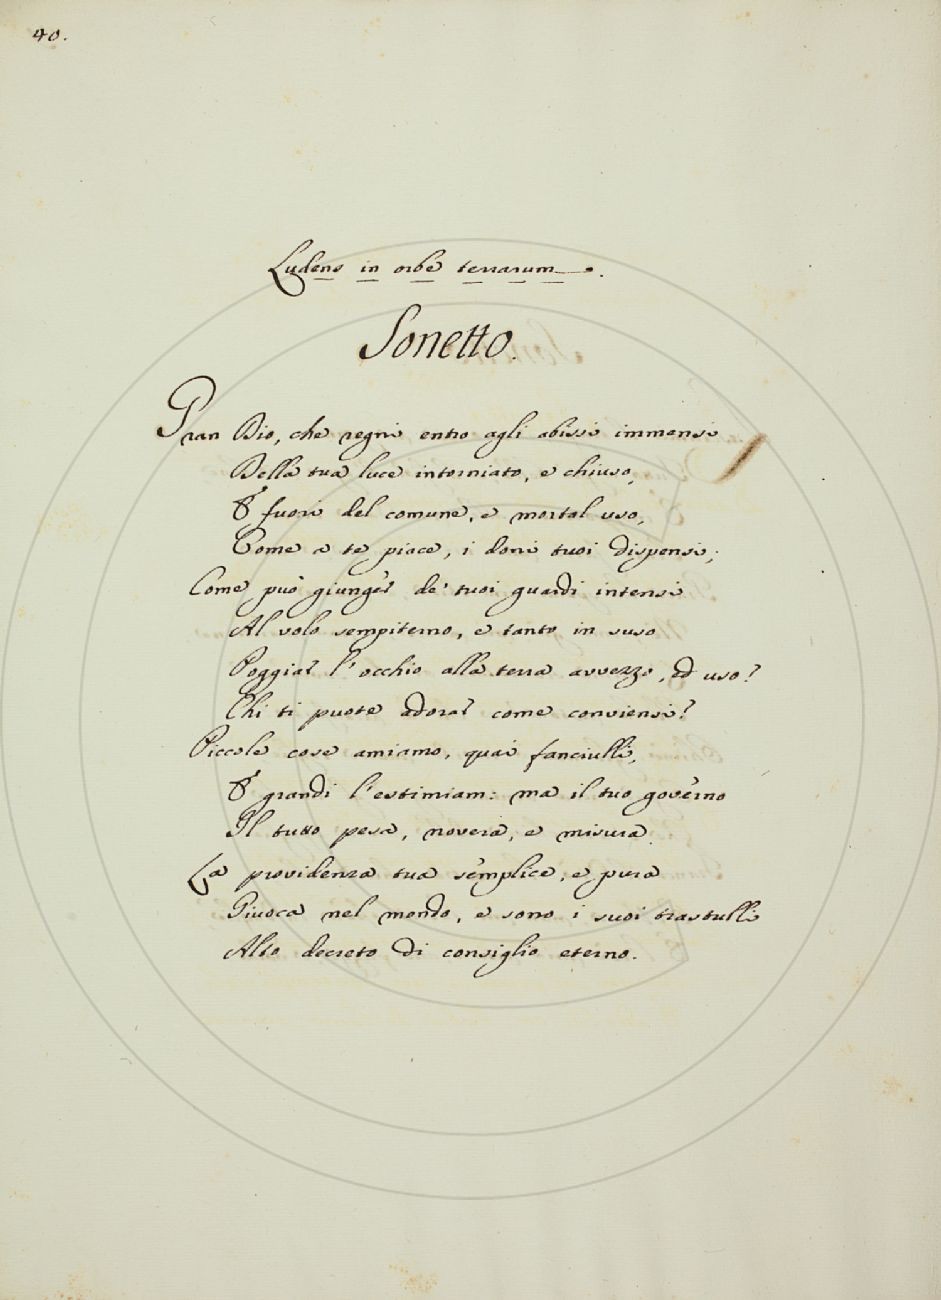 40.
Ludens in orbe terrarum.
Sonetto.
Gran Dio, che regni entro agli abissi immensi
Della tua luce intorniato, e chiuso,
E fuori del comune, e mortal uso,
Come a te piace, i doni tuoi dispensi;
Come può giunger de' tuoi guardi intensi
Al volo sempiterno, e tanto in suso
Poggiar l'occhio alla terra avvezzo, ed uso?
Chi ti puote adorar come conviensi?
Piccole cose amiamo, quai fanciulli,
E grandi l'estimiam: ma il tuo governo
Il tutto pesa, novera, e misura.
La providenza tua semplice, e pura
Giuoca nel mondo, e sono i suoi trastulli
Alto decreto di consiglio eterno.